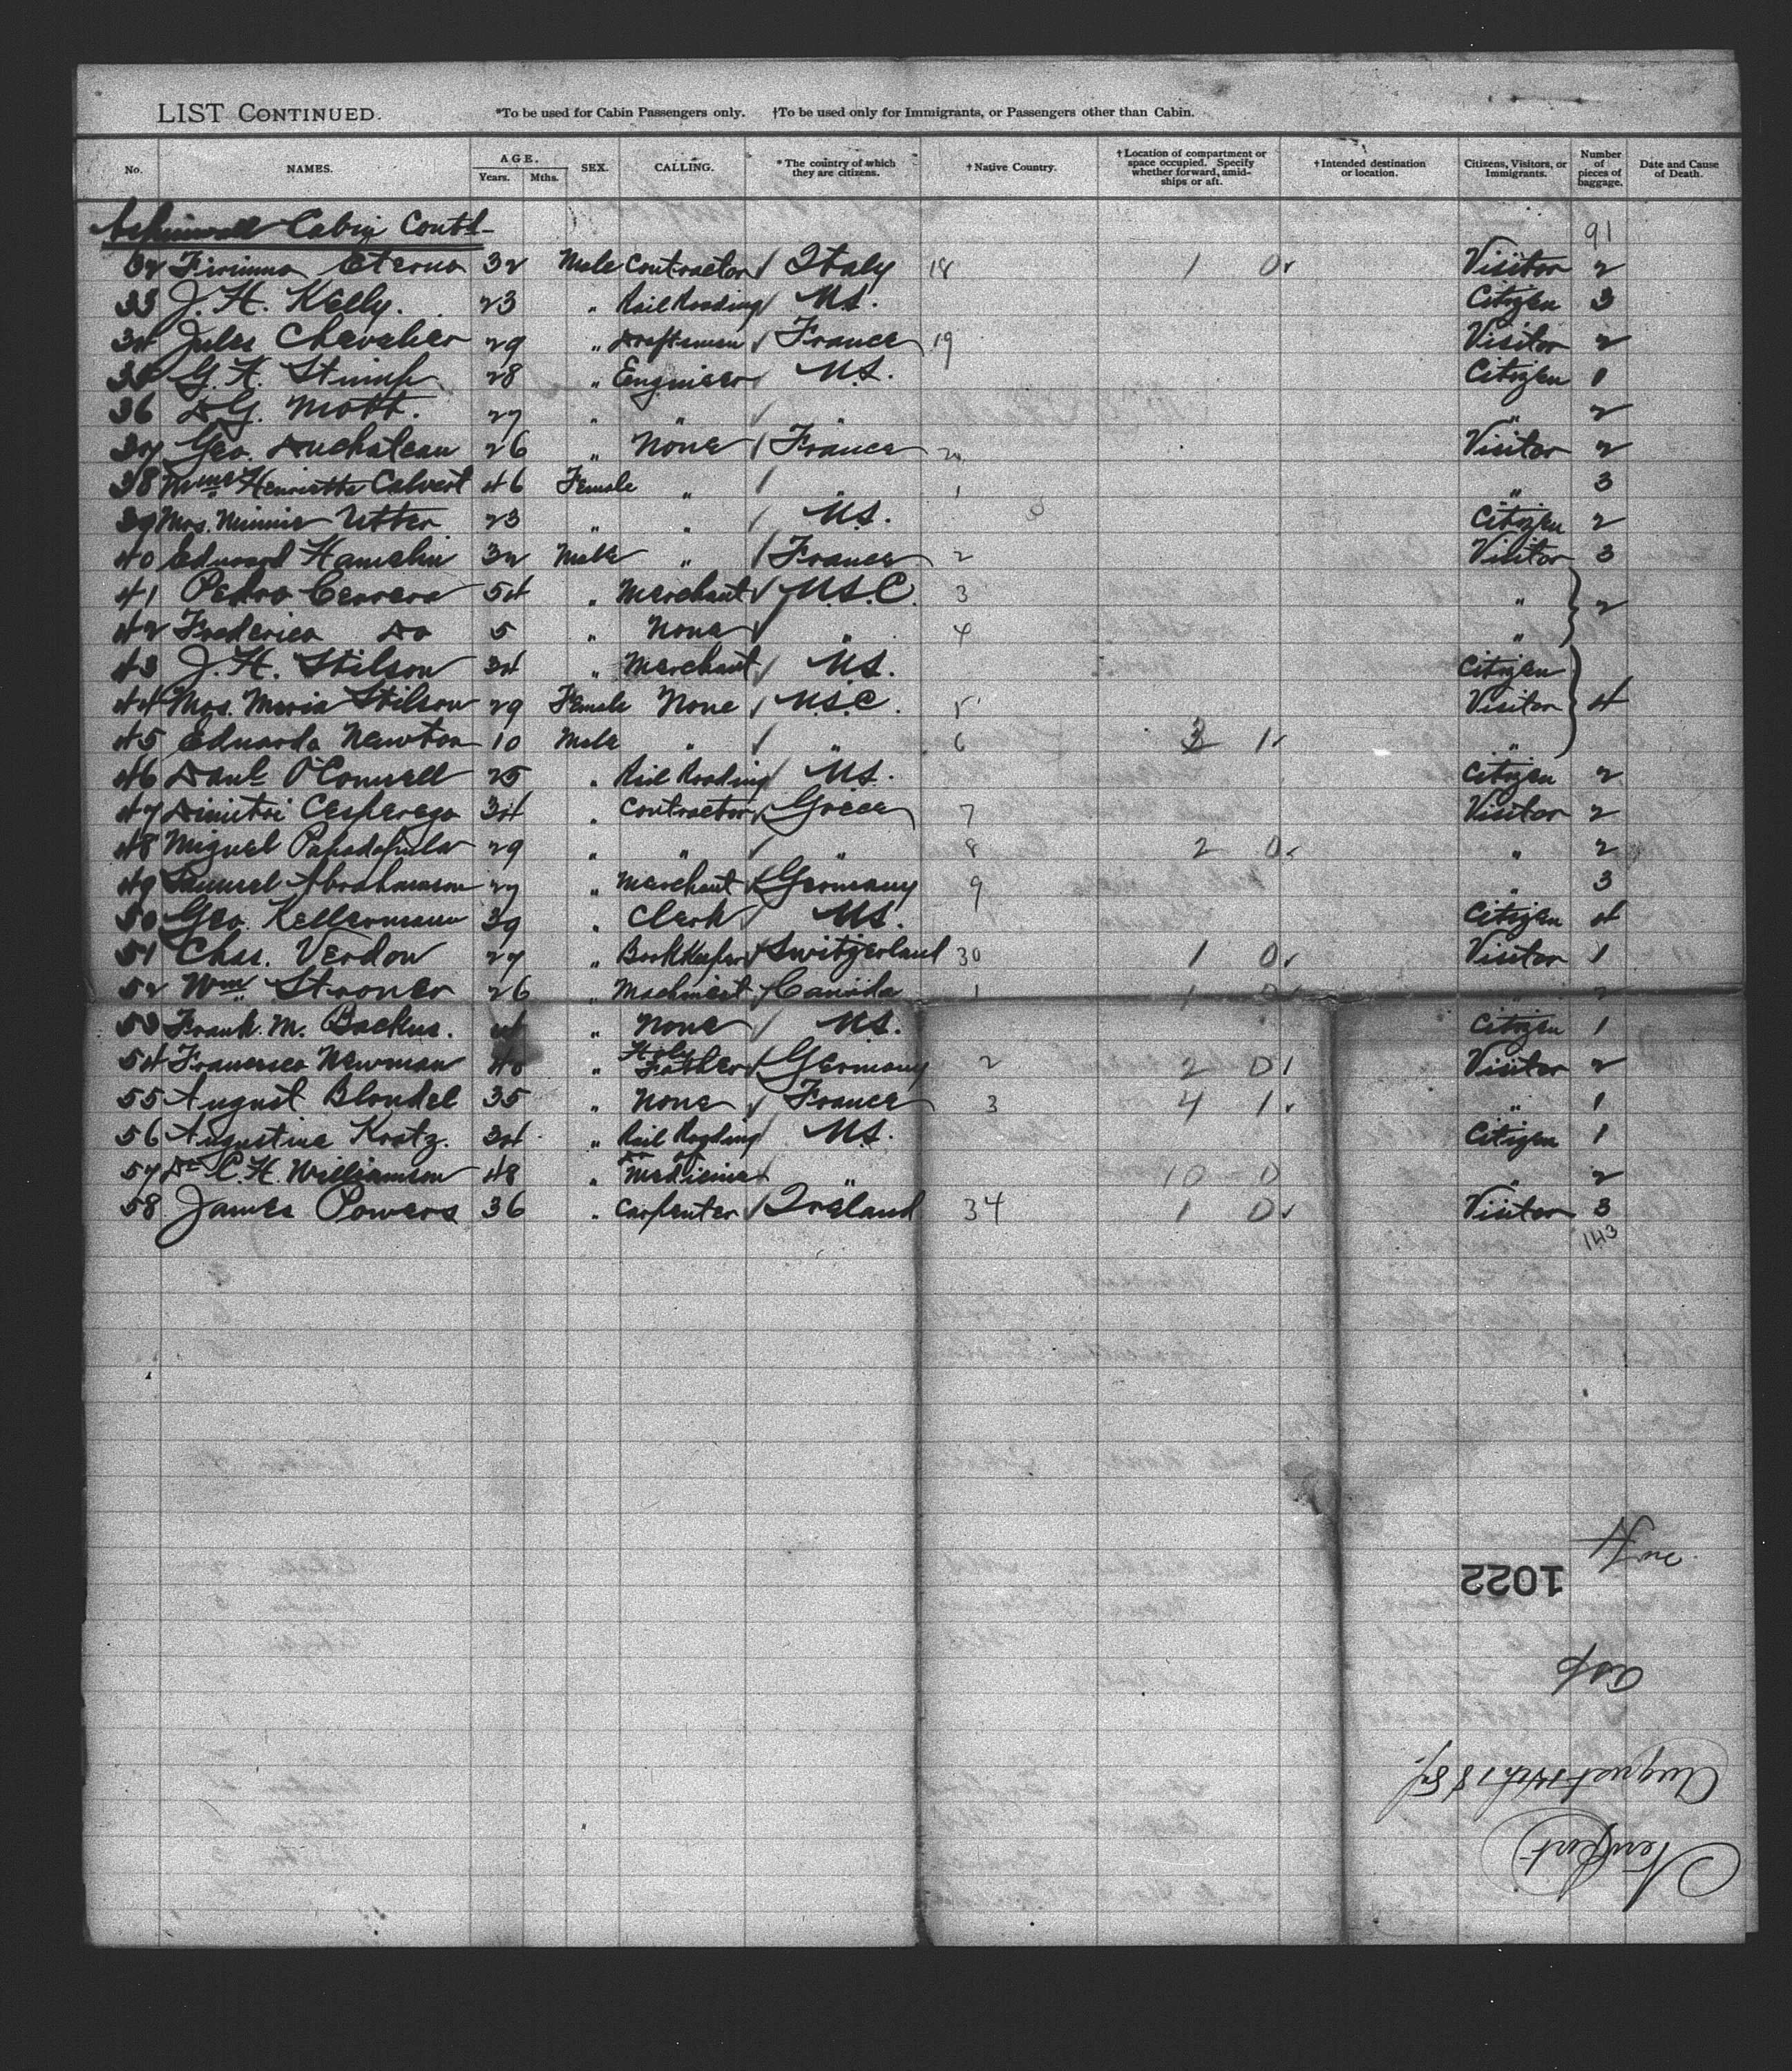 LIST CONTINUED. *To be used for Cabin Passengers only. †To be used only for Immigrants, or Passengers other than Cabin.
No. NAMES. AGE. Years. Mths. SEX. CALLING. *The country of which they are citizens. †Native Country. †Location of compartment or space occupied. Specify whether forward, amidships or aft. †Intended destination or location. Citizens, Visitors, or Immigrants. Number of pieces of baggage. Date and Cause of Death.
Aspinwall Cabin Contd- 91
32 Eterno 32 Male Contractor Italy 18 1 0 Visitor 2
33 J. H. Kelly. 23 " Rail Roading U.S. Citizen 3
34 Jules Chevalier 29 " Draftsman France 19 Visitor 2
35 G. A. Stimp 28 " Engineer U.S. Citizen 1
36 D.G. Mott. 27 " " " " 2
37 Geo. Duchateau 26 " None France 20 Visitor 2
38 Mme Henriette Calvert 46 Female " " 1 " 3
39 Mrs. Minnie Utter 23 " " U.S. Citizen 2
40 Edward Hamelin 32 Male " France 2 Visitor 3
41 Pedro Cerrera 54 " Merchant U.S.C. 3 " 2
42 Frederico Do 5 " None " 4 "
43 J. H. Stilson 34 " Merchant U.S. Citizen
44 Mrs. Maria Stilson 29 Female None U.S.C. 5 Visitor 4
45 Eduardo Newton 10 Male " " 6 3 1 "
46 Danl O'Connell 25 " Rail Roading U.S. Citizen 2
47 Dimitri 34 " Contractor Greece 7 Visitor 2
48 Miguel 29 " " " 8 2 0 " 2
49 Samuel Abrahamson 27 " Merchant Germany 9 " 3
50 Geo. Kellermann 39 " Clerk U.S. Citizen 4
51 Chas. Verdon 27 " Book Keeper Switzerland 30 1 0 Visitor 1
52 Wm Stroner 26 " Machinist Canada 1 1 0 " 2
53 Frank. M. Backus. " None U.S. Citizen 1
54 Francisco Newman 40 " Holy Father Germany 2 2 0 Visitor 2
55 August Blondel 35 " None France 3 4 1 " 1
56 Augustine Kratz. 34 " Rail Roading U.S. Citizen 1
57 Dr C. H. Williamson 48 " Dr of Medicine " 10 0 " 2
58 James Powers 36 " Carpenter Ireland 34 1 0 Visitor 3
143
1022
Asp
August 14th 1889
Newport